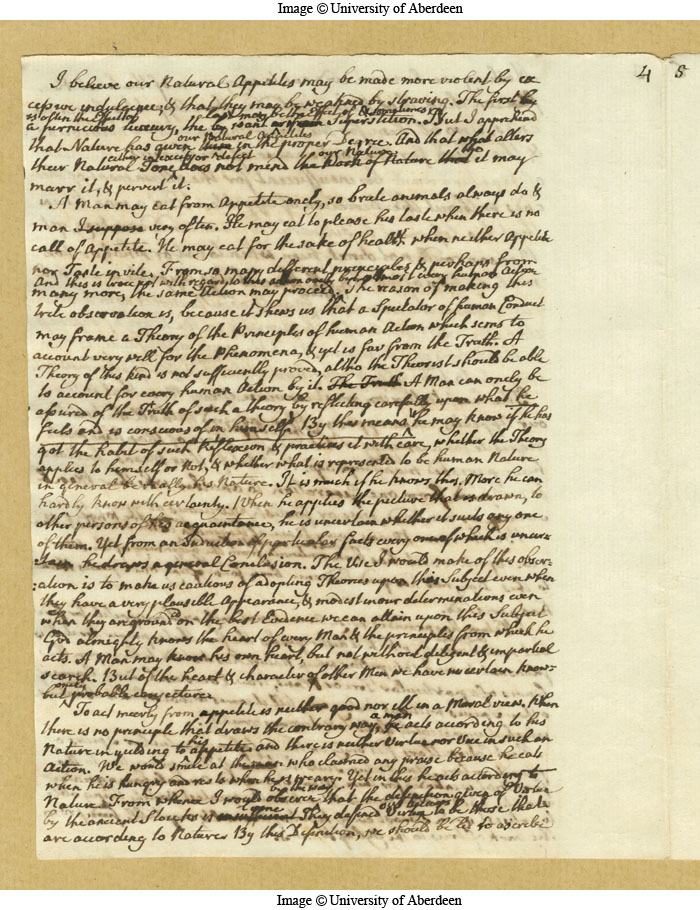 Image © University of Aberdeen
4 5
I believe our Natural Appetites may be made more violent by ex
cessive indulgence; & that they may be weakned by starving. The first by
is often the effect of last may be the effect of & sometimes of
a pernicious luxury, the by want or superstition. But I apprehend
our Natural Appetites
that Nature has given them in the proper Degree. And that what alters
either in excess or defect our Nature, tho
their Natural Tone does not mend the Work of Nature that it may
marr it, & pervert it.
A Man may eat from Appetite onely, so brute animals always do &
man I suppose very often. He may eat to please his taste when there is no
call of Appetite. He may eat for the sake of health when neither Appetite
nor Taste invite. From so many different principles & perhaps from
And this is true not with regard to this action onely but almost every human Action
many more, the same Action may proceed. The reason of making this
trite observation is, because it shews us that a Spectator of human Conduct
may frame a Theory of the Principles of human Action which seems to
account very well for the Phenomena, & yet is far from the Truth. A
Theory of this kind is not sufficiently proved, altho the Theorist should be able
to account for every human Action by it. The Truth A Man can onely be
assured of the Truth of such a theory by reflecting carefully upon what he
feels and is conscious of in himself. By this means, he may know if he has
got the habit of such Reflexion & practises it with care, whether the Theory
applies to himself or not, & whether what is represented to be human Nature
in general be really his Nature. It is much if he knows this. More he can
hardly know with certainty. When he applies the picture that is drawn, to
other persons of his acquaintance, he is uncertain whether it suits any one
of them. Yet from an Induction of particular facts every one of which is uncer-
tain he draws a general Conclusion. The Use I would make of this obser-
vation is to make us cautious of adopting Theories upon this Subject even when
they have a very plausible Appearance, & modest in our determinations even
when they are ground on the best Evidence we can attain upon this Subject
God almighty knows the heart of every Man & the principles from which he
acts. A Man may know his own heart, but not without diligent & impartial
search. But of the heart & character of other Men we have no certain know-
onely
but probable conjecture.
To act meerly from appetite is neither good nor ill in a Moral view. When
a man
there is no principle that draws the contrary way, he acts according to his
his
Nature in yielding to appetite and there is neither Virtue nor Vice in such an
Action. We would smile at the man who claimed any praise because he eats
when he is hungry and rests when he is weary. Yet in this he acts according to
by the way
Nature. From whence I would observe that the definition given of Virtue
by the ancient Stoicks is insufficient They defined Virtue to be those that
are according to Nature By this Definition, we should be led to ascribe